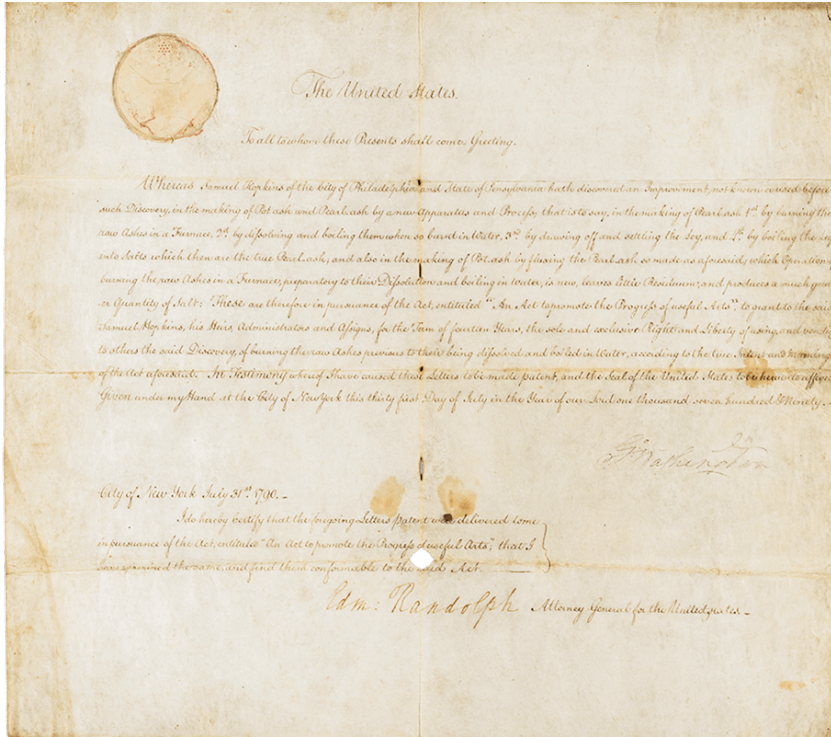 The United States.
To all to whom these Presents shall come Greeting.
Whereas Samuel Hopkins of the City of Philadelphia and State of Pensylvania hath discovered an Improvement, not known or used before
such Discovery, in the making of Pot ash and Pearl ash by a new Apparatus and Process; that is to say, in the making of Pearl ash 1st by burning the
raw Ashes in a Furnace, 2d by dissolving and boiling them when so burnt in Water, 3rd by drawing off and settling the Ley, and 4th by boiling the Ley
into Salts which then are the true Pearl ash; and also in the making of Pot ash by fluxing the Pearl ash so made as aforesaid; which Operation of
burning the raw Ashes in a Furnace, preparatory to their Dissolution and boiling in Water, is new, leaves little Residuum; and produces a much great
er Quantity of Salt: These are therefore in pursuance of the Act, entitled "An Act to promote the Progress of useful Arts", to grant to the said
Samuel Hopkins, his Heirs, Administrators and Assigns, for the Term of fourteen Years, the sole and exclusive Right and Liberty of using, and vending
to others the said Discovery, of burning the raw Ashes previous to their being dissolved and boiled in Water, according to the true Intent and Meaning
of the Act aforesaid. In Testimony whereof I have caused these Letters to be made patent, and the Seal of the United States to be hereunto affixed
Given under my Hand at the City of New York this thirty first Day of July in the Year of our Lord one thousand seven hundred & Ninety.
Go Washington
City of New York July 31st 1790.
I do hereby Certify that the foregoing Letters patent were delivered to me
in pursuance of the Act, entitled "An Act to promote the Progress of useful Arts"; that I
have examined the same, and find them conformable to the said Act.
Edm: Randolph Attorney General for the United States.